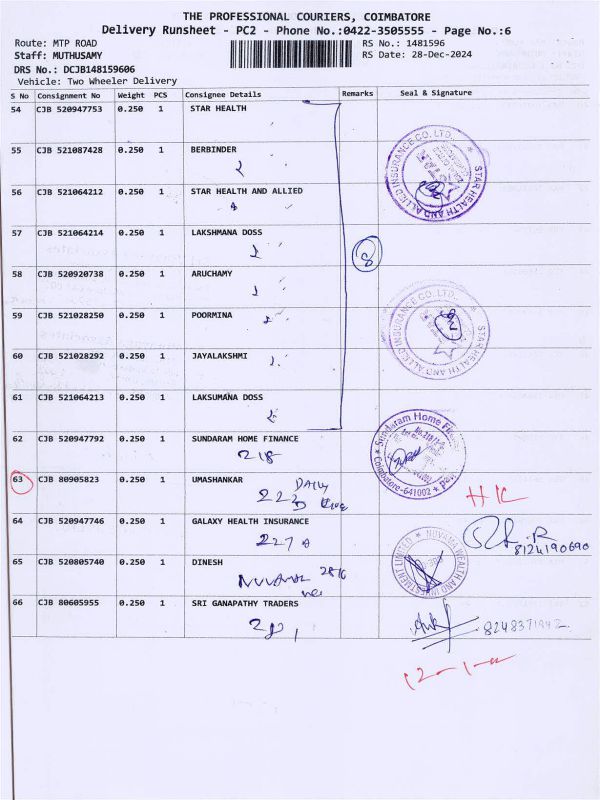 THE PROFESSIONAL COURIERS, COIMBATORE
Delivery Runsheet - PC2 - Phone No.:0422-3505555 - Page No.:6
Route: MTP ROAD RS No.: 1481596
Staff: MUTHUSAMY RS Date: 28-Dec-2024
DRS No.: DCJB148159606
Vehicle: Two Wheeler Delivery
S No Consignment No Weight PCS Consignee Details Remarks Seal & Signature
54 CJB 520947753 0.250 1 STAR HEALTH
55 CJB 521087428 0.250 1 BERBINDER
56 CJB 521064212 0.250 1 STAR HEALTH AND ALLIED
STAR HEALTH AND ALLIED INSURANCE CO. LTD.
57 CJB 521064214 0.250 1 LAKSHMANA DOSS
8
58 CJB 520920738 0.250 1 ARUCHAMY
59 CJB 521028250 0.250 1 POORMINA
STAR HEALTH AND ALLIED INSURANCE CO. LTD.
60 CJB 521028292 0.250 1 JAYALAKSHMI
61 CJB 521064213 0.250 1 LAKSUMANA DOSS
62 CJB 520947792 0.250 1 SUNDARAM HOME FINANCE
218
Sundaram Home Finance
Coimbatore-641002
63 CJB 80905823 0.250 1 UMASHANKAR
DAILY
223
HK
64 CJB 520947746 0.250 1 GALAXY HEALTH INSURANCE
227
8124190690
65 CJB 520805740 0.250 1 DINESH
NUVAMA
NUVAMA WEALTH AND INVESTMENT LIMITED
66 CJB 80605955 0.250 1 SRI GANAPATHY TRADERS
8248371942